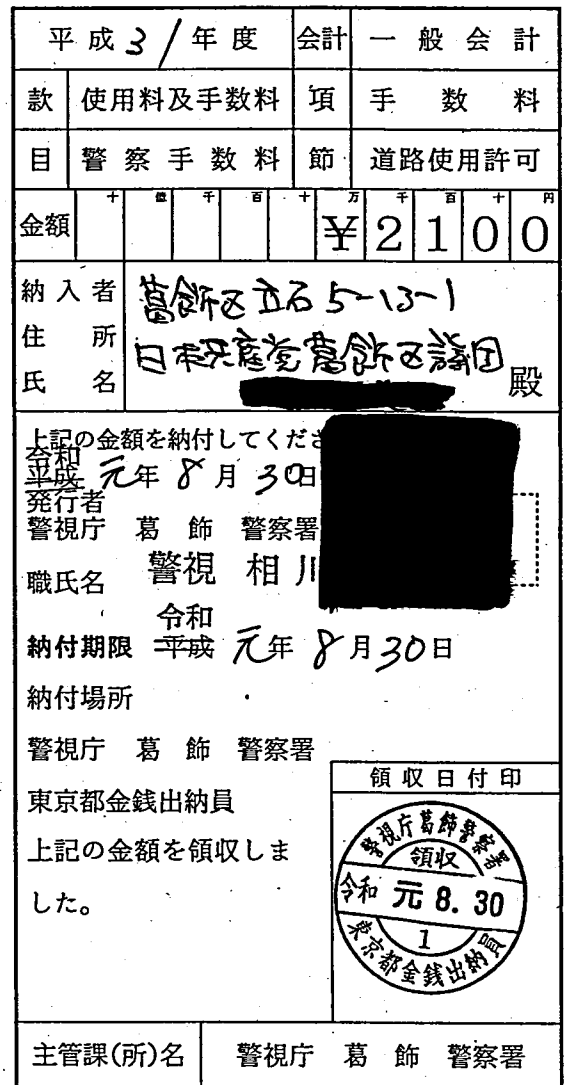 平成31年度 会計 一般会計
款 使用料及手数料 項 手数料
目 警察手数料 節 道路使用許可
十 億 千 百 十 万 千 百 十 円
金額 ¥2100
納入者 葛飾区立石5-13-1
住所 日本共産党葛飾区議団
氏名 殿
上記の金額を納付してくださ
令和
平成 元年8月30日
発行者
警視庁 葛飾 警察署
職氏名 警視 相川
令和
納付期限 平成 元年8月30日
納付場所
警視庁 葛飾 警察署
東京都金銭出納員
上記の金額を領収しま
した。
領収日付印
警視庁葛飾警察署
領収
令和 元 8. 30
1
東京都金銭出納員
主管課(所)名 警視庁 葛飾 警察署